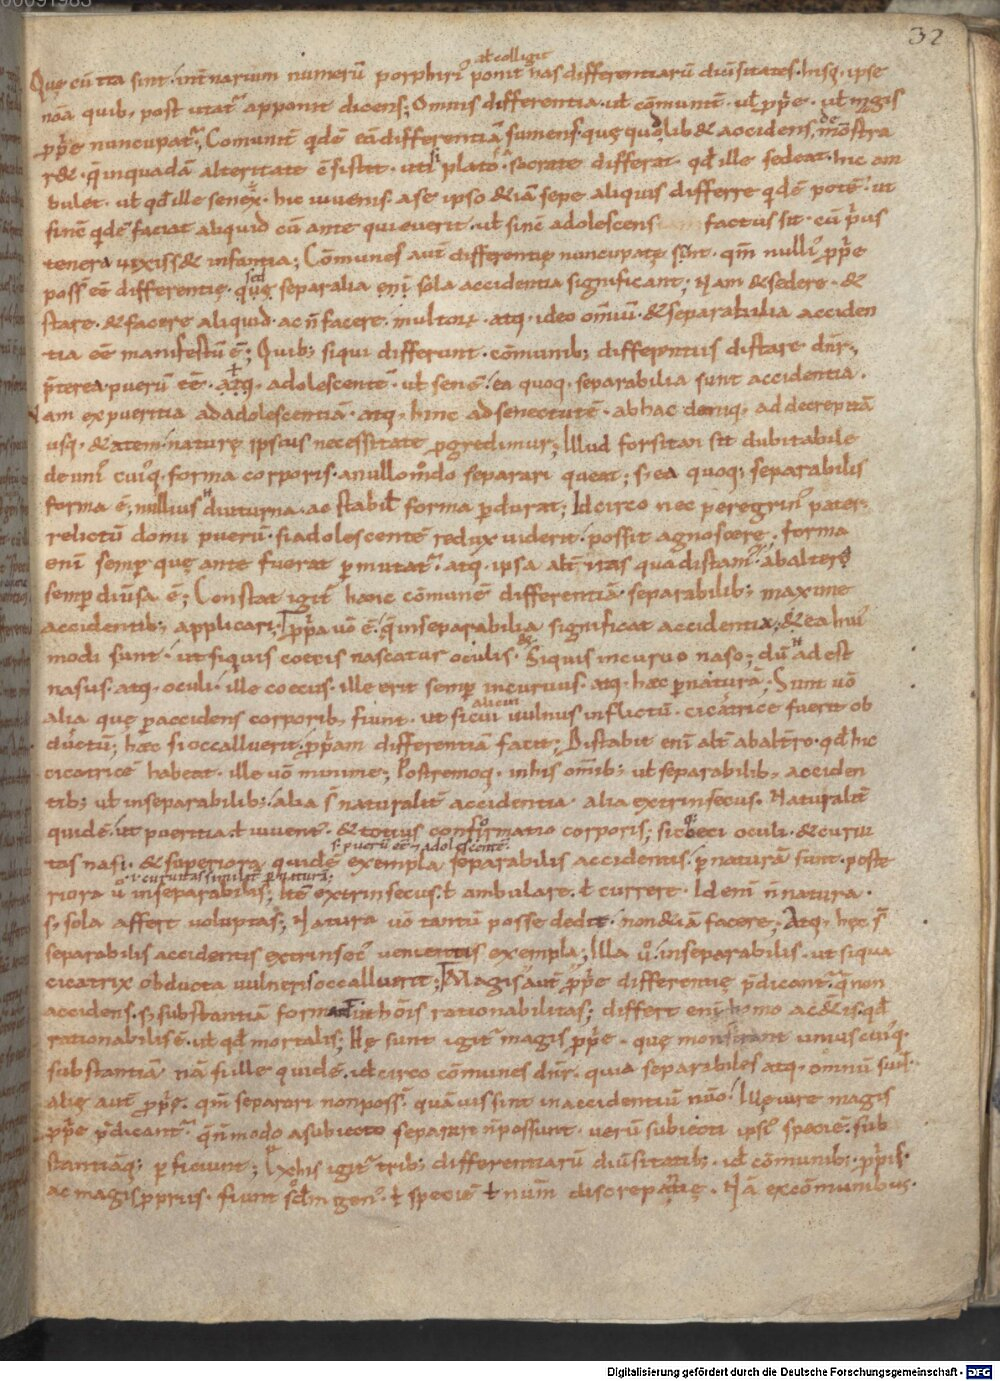 00091983
32
ał colligit
Quę cũ ita sint in ternarium numerũ porphiri' ponit has differentiarũ diũsitates. hisq, ipse
noã quib, post utat' apponit dicens; Omnis differentia. uł cõmunit. uł pp̃e. uł mgis
pp̃e nuncupat'; Comunit̃ qdẽ eã differentiã sumens quę quolib& accidens demõstra
r&. q̃ inquadã alteritate ẽ sistit. uti plato a socrate differat qđ ille sedeat. hic am
bulet. uł qđ ille senex. hic iuuenis. a se ipso &iã sepe aliquis differre qdẽ potẽ. ut
sinẽ qdẽ faciat aliquid cũ ante quieuerit. uł sinẽ adolescens factus sit. cũ p̃us
tenera uixiss& infantia; Cõmunes aut̃ differentię nuncupatę sunt. qm̃ nulli' pp̃e
poss eẽ differentię. quę separalia eni sola accidentia significant; Nam &sedere. &
stare. &facere aliquid. ac ñ facere. multorũ. atq, ideo om̃iũ. &separabilia acciden
tia eẽ manifestũ ẽ; Quib; siqui differunt. cõmunib; differentiis distare dñr;
p̃terea puerũ eẽ. atq, adolescentẽ. uł senẽ. ea quoq, separabilia sunt accidentia.
Nam ex pueritia ad adolescentiã. atq, hinc ad senectutẽ. ab hac deniq, ad decrepitã
usq, &atem. naturę ipsius necessitate pgredimur; Illud forsitan sit dubitabile
de uni' cui'q, forma corporis. an ullo modo separari queat; s, ea quoq; separabilis
forma ẽ; nullius diuturna. ac stabil' forma pdurat; Idcirco nec peregrin' pater.
relictũ domi puerũ. si adolescentẽ redux uiderit. possit agnoscere; forma
eni semp quę ante fuerat pmutat'. atq, ipsa alt̃itas qua distam' ab altero
semp diũsa ẽ; Constat igit' hanc cõmunẽ differentiã separabilib; maxime
accidentib; applicari; Pp̃a uõ ẽ. q̃ inseparabilia significat accidentia; &ea hui'
modi sunt. ut siquis coecis nascatur oculis. siquis incuruo naso; dũ adest
nasus. atq, oculi. ille coecus. ille erit semp incuruus. atq, hæc p naturã; Sunt uõ
alia quę p accidens corporib, fiunt. ut si cui uulnus inflictũ. cicatrice fuerit ob
ductũ; hæc si occalluerit. pp̃am differentiã facit; Distabit eni alt̃ ab alt̃o. qđ hic
cicatricẽ habeat. ille uõ minime; Postremoq, in his om̃ib; uł separabilib, acciden
tib; uł inseparabilib; alia s̃ naturalit̃ accidentia. alia extrinsecus. Naturalit̃
quidẽ. ut pueritia. ł iuuent'. &totius confirmatio corporis; sic ceci oculi. &curui
tas nasi. &superiora quidẽ exempla separabilis accidentis. p naturã sunt. poste
riora u' inseparabilis; Itẽ extrinsecus. ł ambulare. ł currere. Id eni ñ natura.
s, sola affert uoluptas; Natura uõ tantũ posse dedit. non&iã facere; Atq, hęc s̃
separabilis accidentis extrinsec' uenientis exempla; Illa u' inseparabilis. ut siqua
cicatrix obducta uulneris occalluerit; Magis aut̃ pp̃e differentię p̃dicant'. q̃ non
accidens. s, substantiã format. ut hõis rationabilitas; differt eni homo a c&eris. qđ
rationabilis ẽ. uł qđ mortalis; Hę sunt igit' magis pp̃e. quę monstrant unius cui'q.
substantiã nã si ille quidẽ. idcirco cõmunes dñr. quia separabiles atq, omniũ sunt.
alię aut̃ pp̃ę. qm̃ separari non poss. quãuis sint in accidentiũ nũo. Illę iure magis
pp̃e p̃dicant'. q̃ ñ modo a subiecto separari ñ possunt. uerũ subiecti ipsi' speciẽ. sub
stantiãq; perficiunt; Ex his igit' trib; differentiarũ diũsitatib;. id cõmunib;. pp̃is.
ac magis propriis. fiunt scđm gen'. ł speciẽ ł num̃ discrepatię. Nã ex cõmunibus.
Digitalisierung gefördert durch die Deutsche Forschungsgemeinschaft - DFG